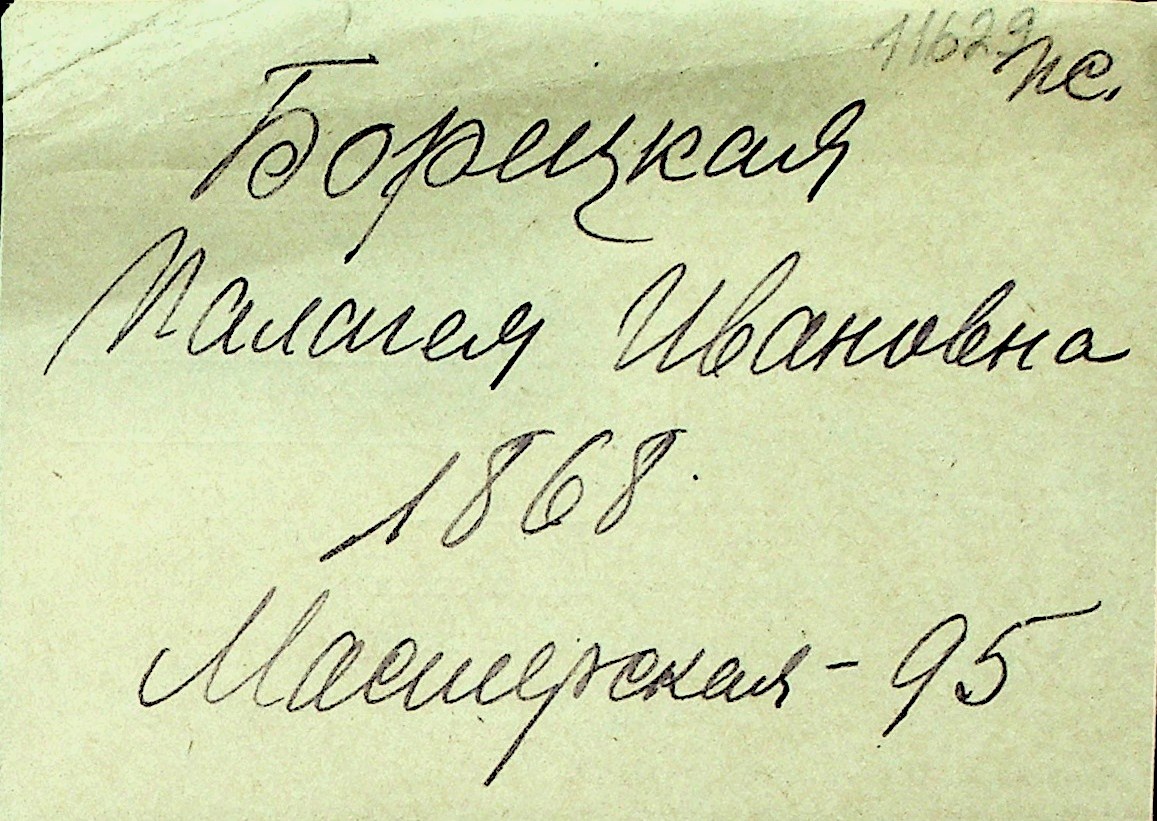 11629
пс.
Борецкая
Палагея Ивановна
1868.
Мастерская - 95